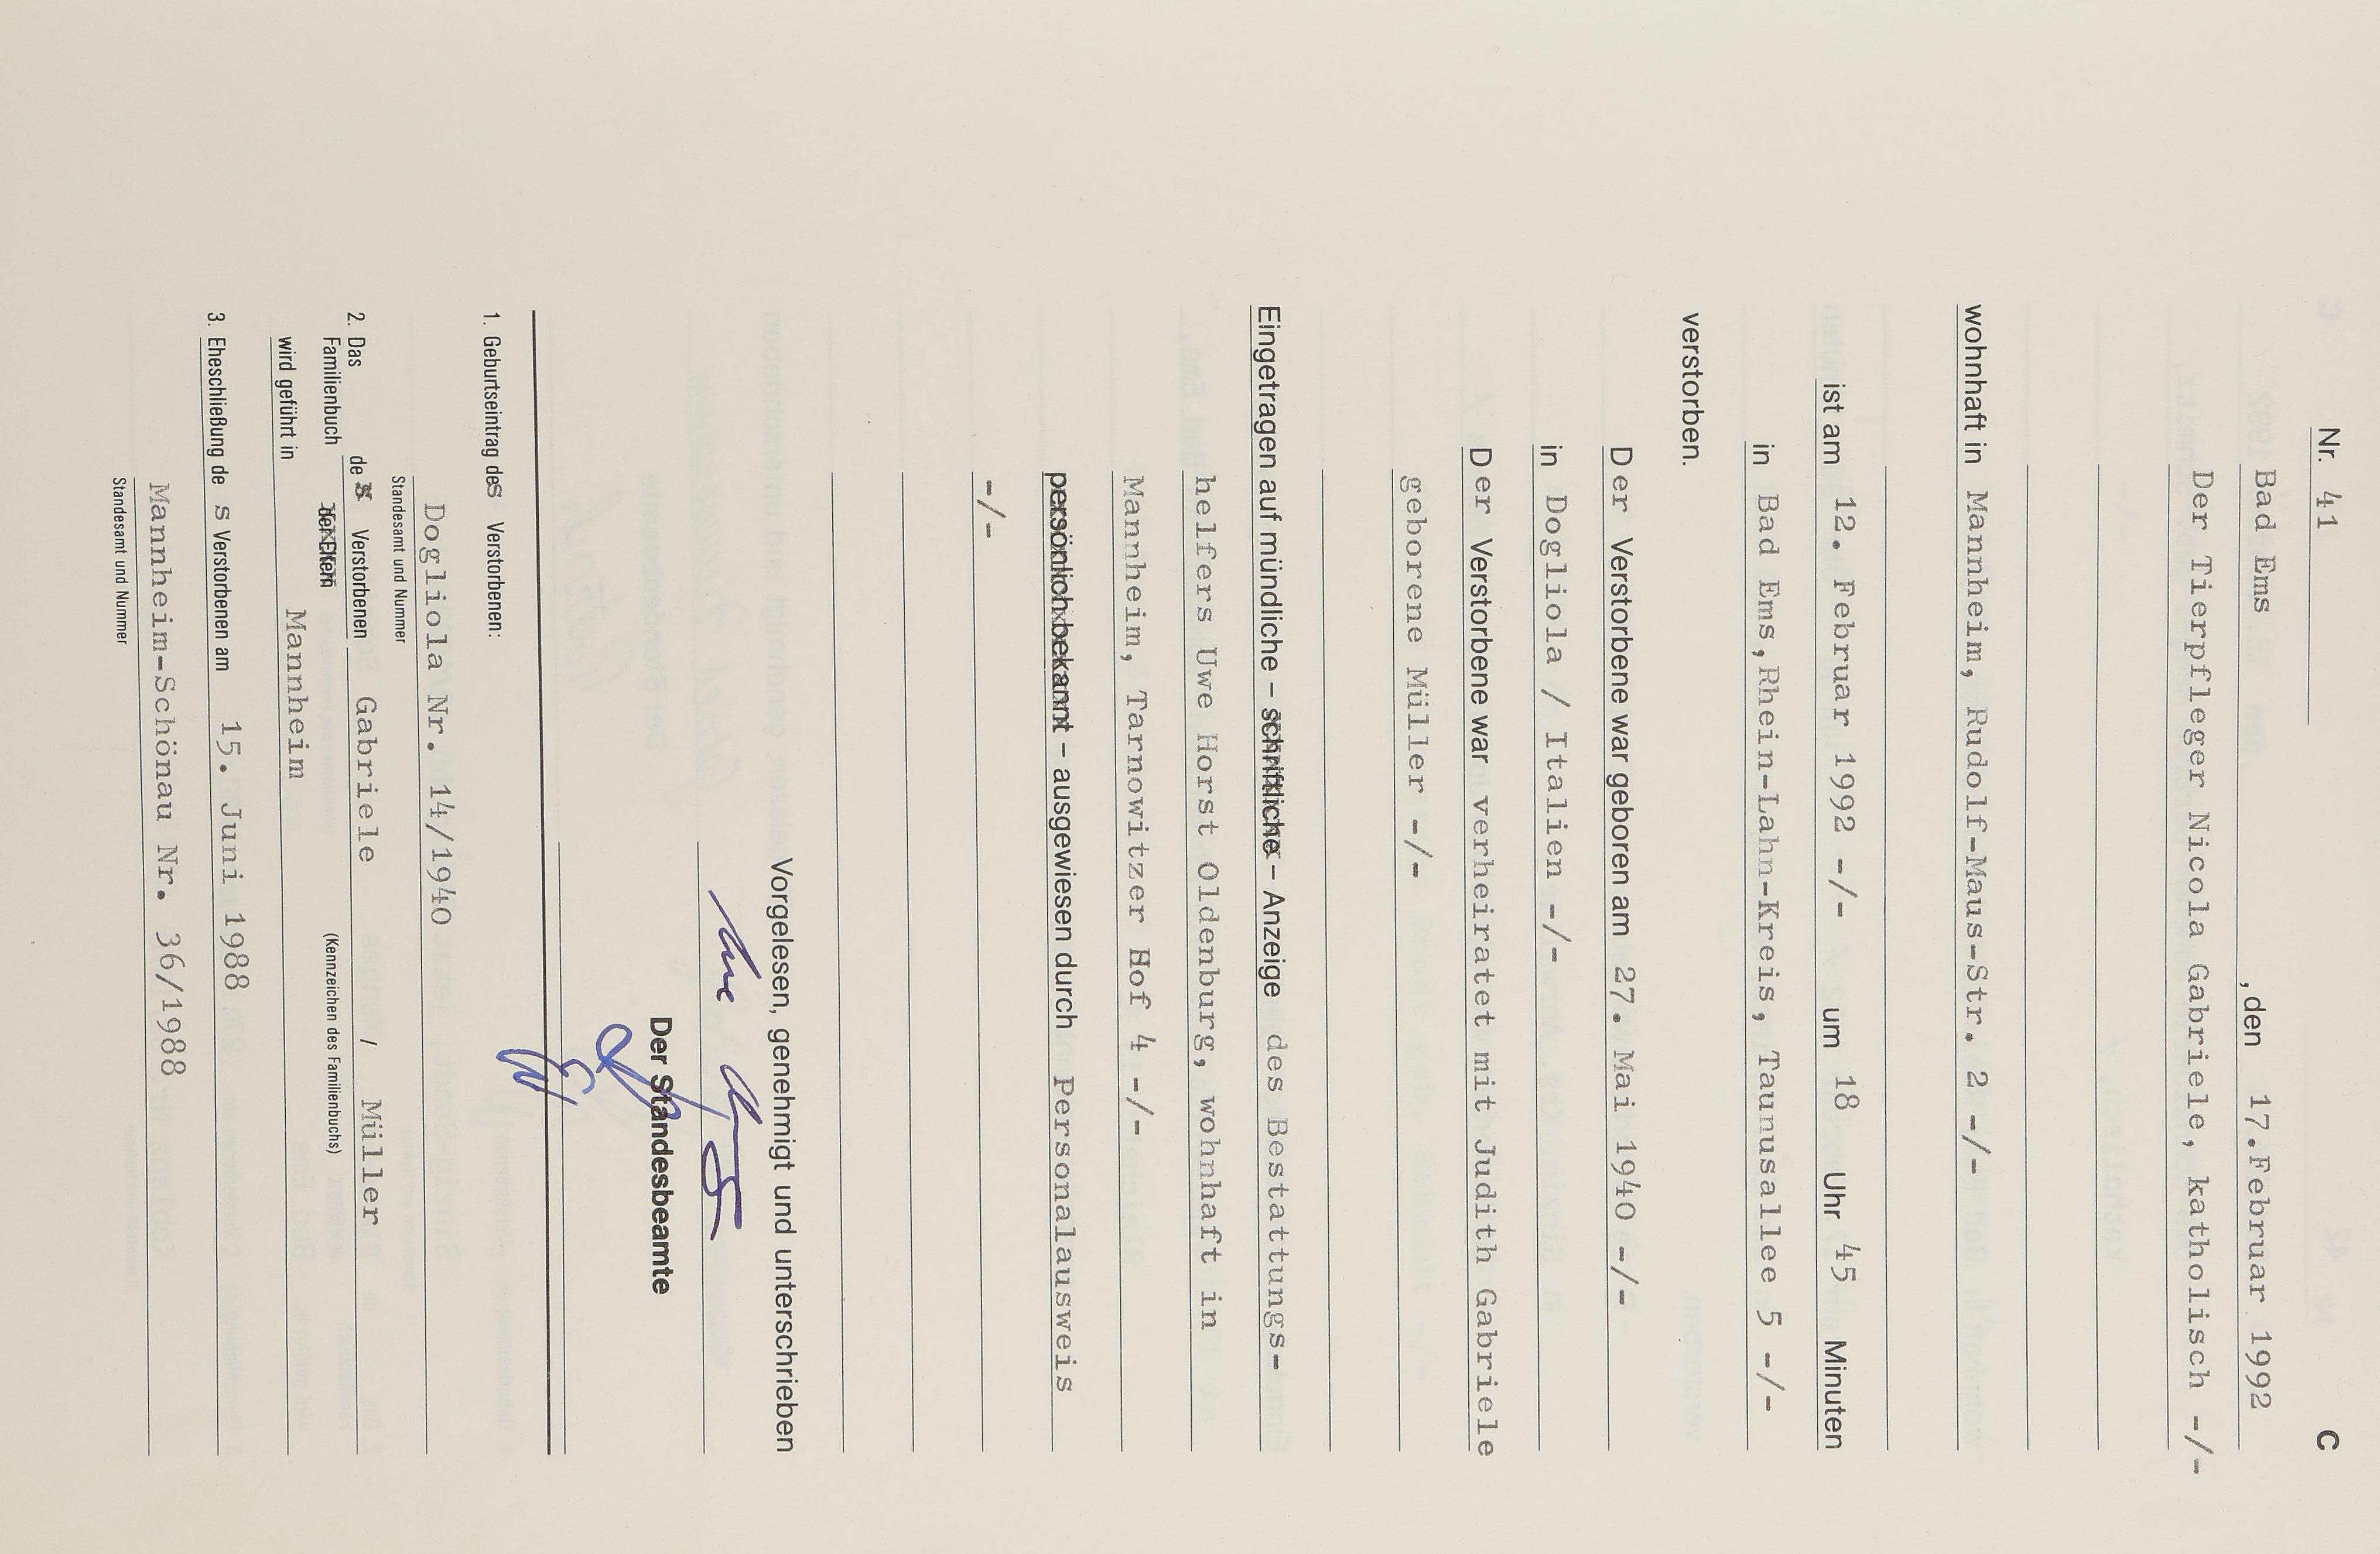 Nr. 41 C
Bad Ems , den 17.Februar 1992
Der Tierpfleger Nicola Gabriele, katholisch -/-
wohnhaft in Mannheim, Rudolf-Maus-Str. 2 -/-
ist am 12. Februar 1992 -/- um 18 Uhr 45 Minuten
in Bad Ems,Rhein-Lahn-Kreis, Taunusallee 5 -/-
verstorben.
Der Verstorbene war geboren am 27. Mai 1940 -/-
in Dogliola / Italien -/-
Der Verstorbene war verheiratet mit Judith Gabriele
geborene Müller -/-
Eingetragen auf mündliche – schriftliche – Anzeige des Bestattungs-
helfers Uwe Horst Oldenburg, wohnhaft in
Mannheim, Tarnowitzer Hof 4 -/-
persönlich bekannt – ausgewiesen durch Personalausweis
-/-
Vorgelesen, genehmigt und unterschrieben
Der Standesbeamte
1. Geburtseintrag des Verstorbenen:
Dogliola Nr. 14/1940
Standesamt und Nummer
2. Das Familienbuch des Verstorbenen der Eltern Gabriele / Müller
(Kennzeichen des Familienbuchs)
wird geführt in Mannheim
3. Eheschließung des Verstorbenen am 15. Juni 1988
Mannheim-Schönau Nr. 36/1988
Standesamt und Nummer